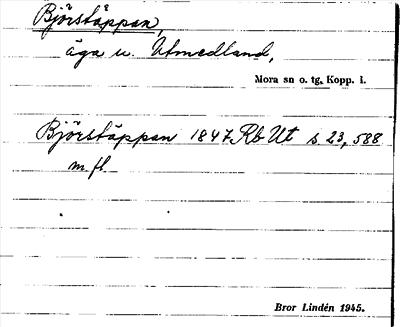 Björstäppan,
äga u. Utmedland,
Mora sn o. tg, Kopp. l.
Björstäppan 1847 Rb Ut s 23, 588
m fl
Bror Lindén 1945.